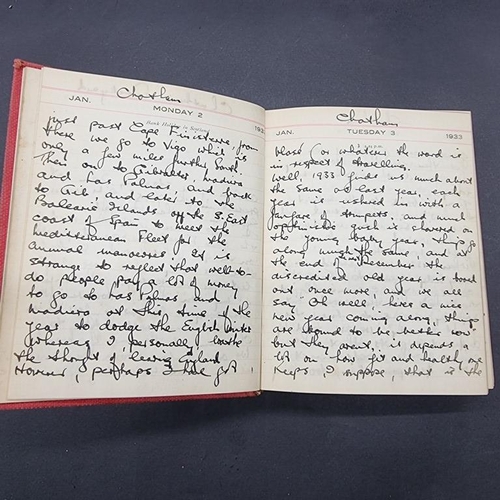 Chatham
JAN. MONDAY 2 1933
Bank Holiday in Scotland
just past Cape Finisterre, from
there we go to Vigo which is
only a few miles further South.
Then on to Gibraltar, Madeira
and Las Palmas and back
to Gib and later to the
Balearic Islands off the S. East
coast of Spain to meet the
Mediterranean Fleet for the
annual manoeuvres. It is
strange to reflect that well-to-
do people pay a lot of money
to go to Las Palmas and
Madeira at this time of the
year to dodge the English winter
whereas I personally loathe
the thought of leaving England
However, perhaps I have got
Chatham
JAN. TUESDAY 3 1933
blasé (or whatever the word is
in respect of travelling.
Well, 1933 finds us much about
the same as last year, each
year is ushered in with a
fanfare of trumpets, and much
optimistic gush is showered on
the young baby year, things go
along much the same, and at
the end in December the
discredited old year is trod
out once more, and we all
say "Oh well, here's a nice
new year coming along, things
are bound to be better now"
but they aren't, it depends a
lot on how fit and healthy one
keeps, I suppose, that is the